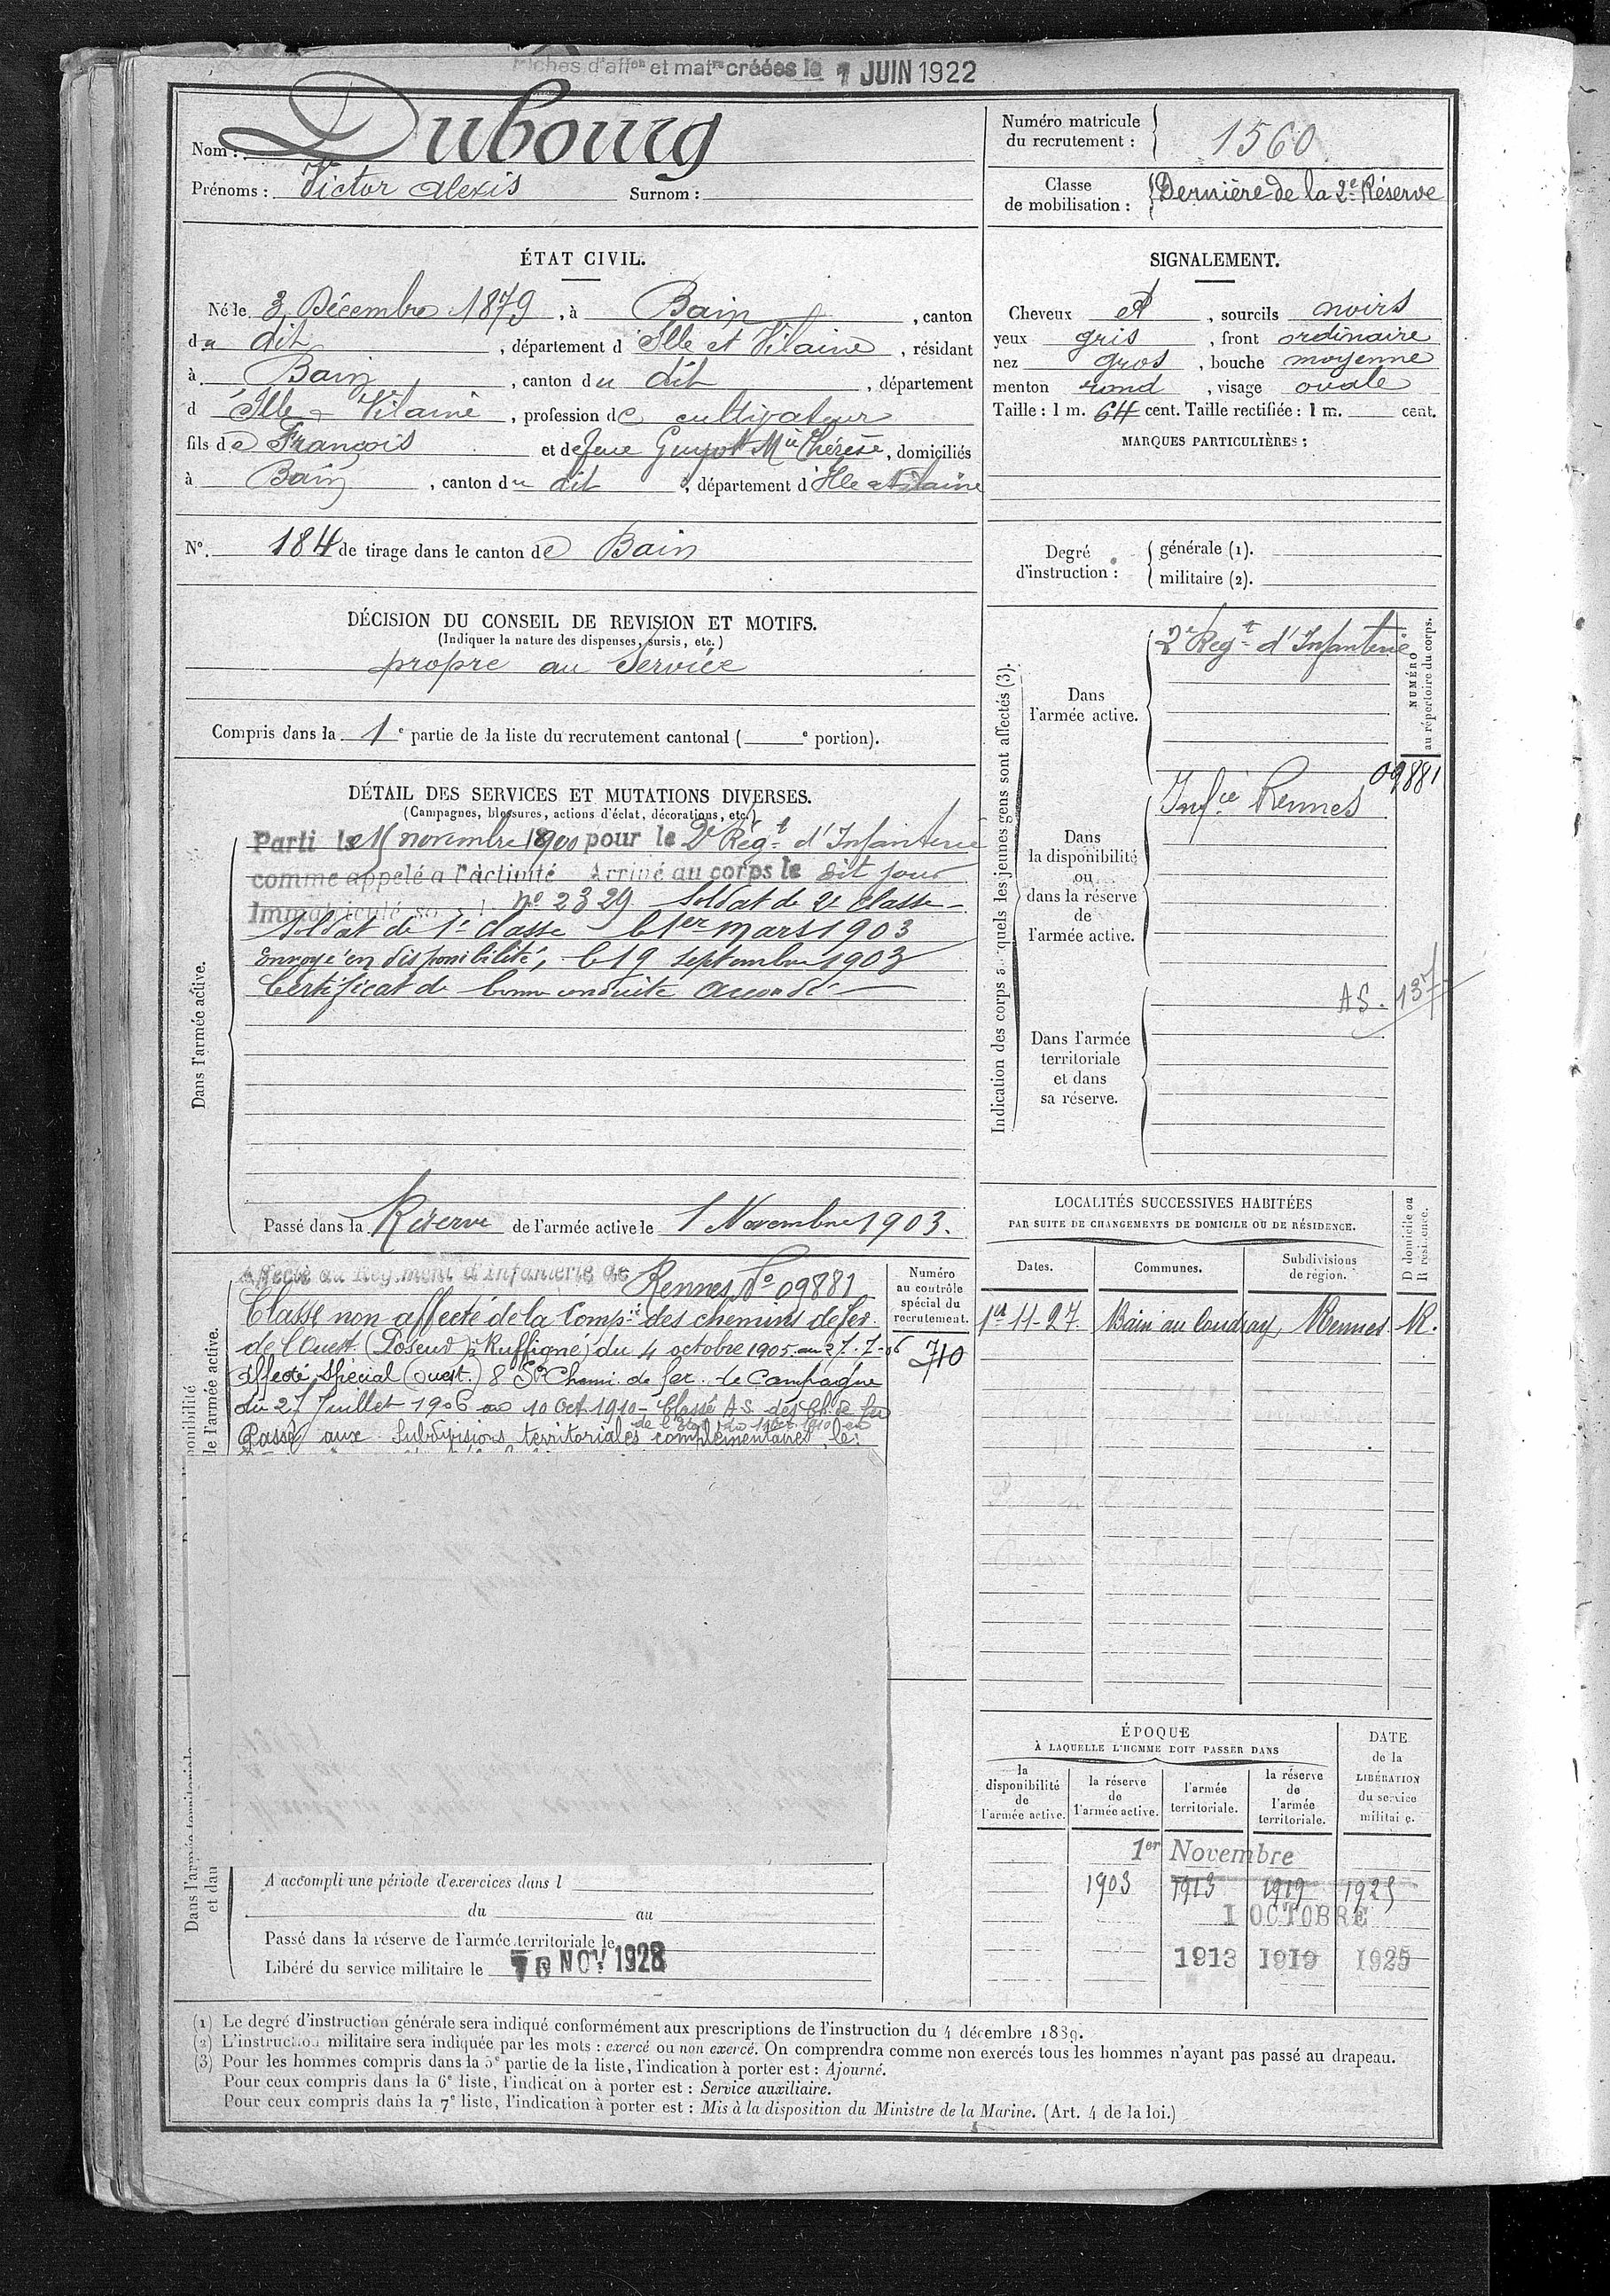 Fiches d'affon et matre créées le 1 JUIN 1922
Nom : Dubourg
Prénoms : Victor Alexis Surnom :
Numéro matricule du recrutement : 1560
Classe de mobilisation : Dernière de la 2e Réserve
ÉTAT CIVIL.
Né le 3 Décembre 1879, à Bain, canton
du dit, département d'Ille et Vilaine, résidant
à Bain, canton du dit, département
d'Ille & Vilaine, profession de cultivateur
fils de François et de feue Guyot Mie Thérèse, domiciliés
à Bain, canton du dit, département d'Ille et Vilaine
N°. 184 de tirage dans le canton de Bain
SIGNALEMENT.
Cheveux et, sourcils noirs
yeux gris, front ordinaire
nez gros, bouche moyenne
menton rond, visage ovale
Taille : 1 m. 64 cent. Taille rectifiée : 1 m. cent.
MARQUES PARTICULIÈRES :
Degré d'instruction : générale (1).
militaire (2).
DÉCISION DU CONSEIL DE REVISION ET MOTIFS.
(Indiquer la nature des dispenses, sursis, etc.)
propre au service
Compris dans la 1e partie de la liste du recrutement cantonal ( e portion).
DÉTAIL DES SERVICES ET MUTATIONS DIVERSES.
(Campagnes, blessures, actions d'éclat, décorations, etc.)
Dans l'armée active.
Parti le 15 novembre 1900 pour le 2e Régt d'Infanterie
comme appelé à l'activité Arrivé au corps le dit jour
Immatriculé so no 2329 Soldat de 2e classe -
Soldat de 1e classe le 1er mars 1903
envoyé en disponibilité, le 19 septembre 1903
Certificat de bonne conduite accordé
Passé dans la Réserve de l'armée active le 1 Novembre 1903.
Indication des corps auxquels les jeunes gens sont affectés (3).
NUMÉRO au répertoire du corps.
Dans l'armée active.
2e Régt d'Infanterie
Dans la disponibilité ou dans la réserve de l'armée active.
Infie Rennes 09881
Dans l'armée territoriale et dans sa réserve.
A S. 137
ponibilité
le l'armée active.
Affecté au Régiment d'Infanterie de Rennes No 09881
Classé non affecté de la Compie des chemins de fer
de l'Ouest (Poseur à Ruffigné) du 4 octobre 1905 au 27-7-06
Affecté spécial (ouest) 8 Son Chemi. de fer de Campagne
du 27 Juillet 1906 au 10 Oct 1910 - Classé A.S. des Ch. de fer
de l'Etat du
Passé aux Subdivisions territoriales complémentaires, le
Numéro au contrôle spécial du recrutement.
710
LOCALITÉS SUCCESSIVES HABITÉES
PAR SUITE DE CHANGEMENTS DE DOMICILE OU DE RÉSIDENCE.
Dates. Communes. Subdivisions de région. D domicile ou R résidence.
1er-11-27 Bain au Coudray Rennes R.
ÉPOQUE
À LAQUELLE L'HOMME DOIT PASSER DANS
la disponibilité de l'armée active.
la réserve de l'armée active.
l'armée territoriale.
la réserve de l'armée territoriale.
DATE de la LIBÉRATION du service militaire.
1er Novembre
1903 1913 1919 1925
1 OCTOBRE
1913 1919 1925
Dans l'armée territoriale
et dan
A accompli une période d'exercices dans l
du au
Passé dans la réserve de l'armée territoriale le
Libéré du service militaire le 10 NOV 1928
(1) Le degré d'instruction générale sera indiqué conformément aux prescriptions de l'instruction du 4 décembre 1889.
(2) L'instruction militaire sera indiquée par les mots : exercé ou non exercé. On comprendra comme non exercés tous les hommes n'ayant pas passé au drapeau.
(3) Pour les hommes compris dans la 5e partie de la liste, l'indication à porter est : Ajourné.
Pour ceux compris dans la 6e liste, l'indication à porter est : Service auxiliaire.
Pour ceux compris dans la 7e liste, l'indication à porter est : Mis à la disposition du Ministre de la Marine. (Art. 4 de la loi.)